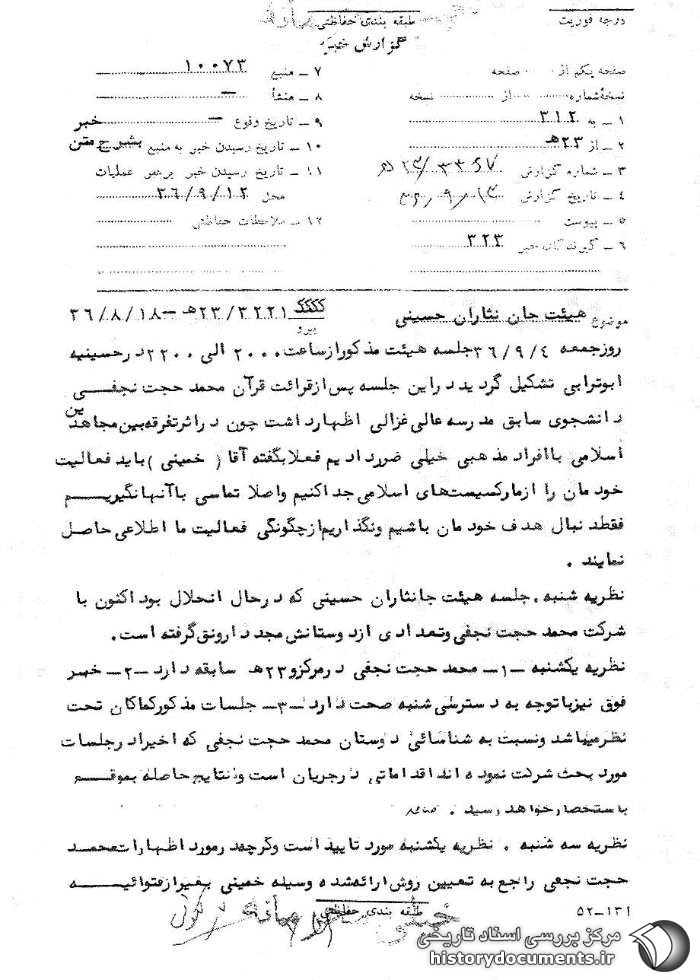 درجه فوریت
طبقه بندی حفاظتی
گزارش خبر
صفحه یکم از صفحه
نسخه شماره از نسخه
۱ - به ۳۱۲
۲ - از ۲۳ه
۳ - شماره گزارش
۴ - تاریخ گزارش
۵ - پیوست
۶ - گیرندگان خبر ۳۲۳
۷ - منبع ۱۰۰۷۳
۸ - منشأ —
۹ - تاریخ وقوع — خبر
۱۰ - تاریخ رسیدن خبر به منبع بشرح متن
۱۱ - تاریخ رسیدن خبر برهبر عملیات
محل ۳۶/۹/۱۲
۱۲ - ملاحظات حفاظتی
موضوع هیئت جان نثاران حسینی پیرو ۲۳/۳۲۲۱ه - ۳۶/۸/۱۸
روزجمعه ۳۶/۹/۴ جلسه هیئت مذکورازساعت ۲۰۰۰ الی ۲۲۰۰ درحسینیه
ابوترابی تشکیل گردید دراین جلسه پس ازقرائت قرآن محمد حجت نجفی
دانشجوی سابق مدرسه عالی غزالی اظهارداشت چون دراثرتفرقه بین مجاهدین
اسلامی باافراد مذهبی خیلی ضرردادیم فعلا بگفته آقا ( خمینی ) باید فعالیت
خودمان را ازمارکسیست‌های اسلامی جداکنیم واصلا تماسی باآنهانگیریم
فقط دنبال هدف خودمان باشیم ونگذاریم ازچگونگی فعالیت ما اطلاعی حاصل
نمایند .
نظریه شنبه . جلسه هیئت جانثاران حسینی که درحال انحلال بود اکنون با
شرکت محمد حجت نجفی وتعدادی ازدوستانش مجددا رونق گرفته است.
نظریه یکشنبه -۱- محمد حجت نجفی درمرکزو۲۳ه سابقه دارد -۲- خبر
فوق نیزباتوجه به دسترسی شنبه صحت دارد -۳- جلسات مذکورکماکان تحت
نظرمیباشد ونسبت به شناسائی دوستان محمد حجت نجفی که اخیرا درجلسات
مورد بحث شرکت نموده اند اقداماتی درجریان است ونتایج حاصله بموقع
باستحضارخواهد رسید .
نظریه سه شنبه . نظریه یکشنبه مورد تایید است وگرچه درمورد اظهارات محمد
حجت نجفی راجع به تعیین روش ارائه شده وسیله خمینی بغیرازفتوائیه
طبقه بندی حفاظتی
۵۲-۱۳۱
مرکز بررسی اسناد تاریخی
historydocuments.ir